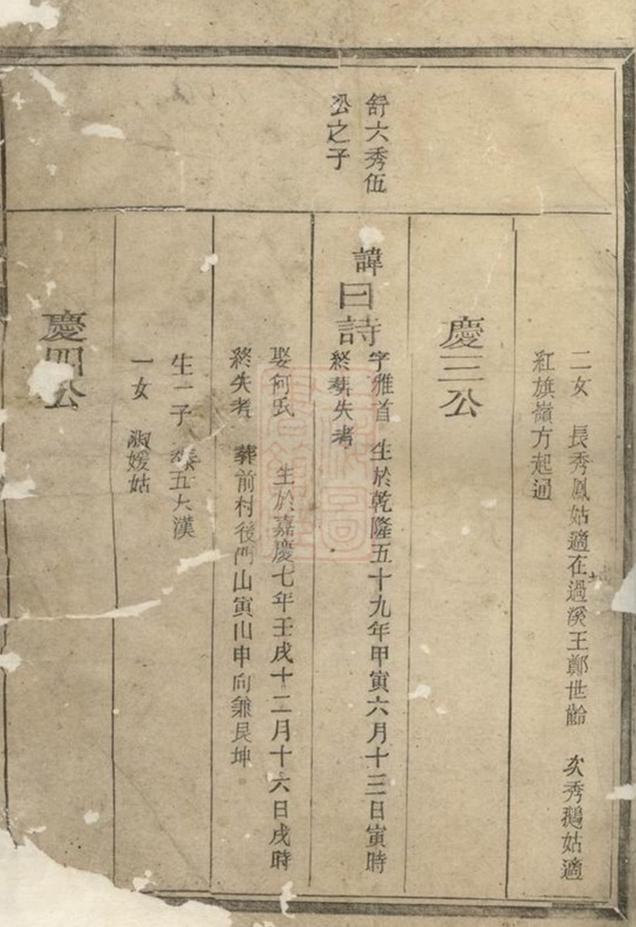 舒六秀伍
公之子
二女 長秀鳳姑適在過溪王鄭世齡 次秀鵝姑適
紅旗嶺方起通
慶三公
諱曰詩
字雅首 生於乾隆五十九年甲寅六月十三日寅時
終葬失考
娶何氏 生於嘉慶七年壬戌十二月十六日戌時
終失考 葬前村後門山寅山申向兼艮坤
生一子 五大漢
一女 淑媛姑
慶四公